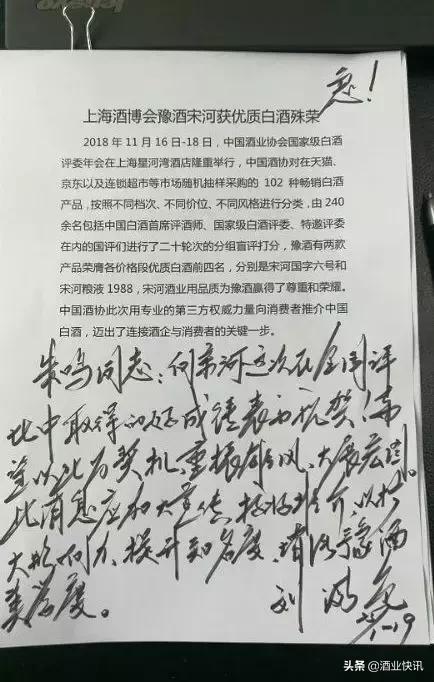 急！
上海酒博会豫酒宋河获优质白酒殊荣
2018 年 11 月 16 日-18 日，中国酒业协会国家级白酒
评委年会在上海星河湾酒店隆重举行，中国酒协对在天猫、
京东以及连锁超市等市场随机抽样采购的 102 种畅销白酒
产品，按照不同档次、不同价位、不同风格进行分类，由 240
余名包括中国白酒首席评酒师、国家级白酒评委、特邀评委
在内的国评们进行了二十轮次的分组盲评打分，豫酒有两款
产品荣膺各价格段优质白酒前四名，分别是宋河国字六号和
宋河粮液 1988，宋河酒业用品质为豫酒赢得了尊重和荣耀。
中国酒协此次用专业的第三方权威力量向消费者推介中国
白酒，迈出了连接酒企与消费者的关键一步。
朱鸣同志：向宋河这次在全国评
比中取得的好成绩表示祝贺！希
望以此为契机重振雄风、大展宏图。
此消息应加大宣传、搞好推介，以扩
大影响力、提升知名度、豫酒
美誉度。 刘满仓
11-19
头条 @酒业快讯